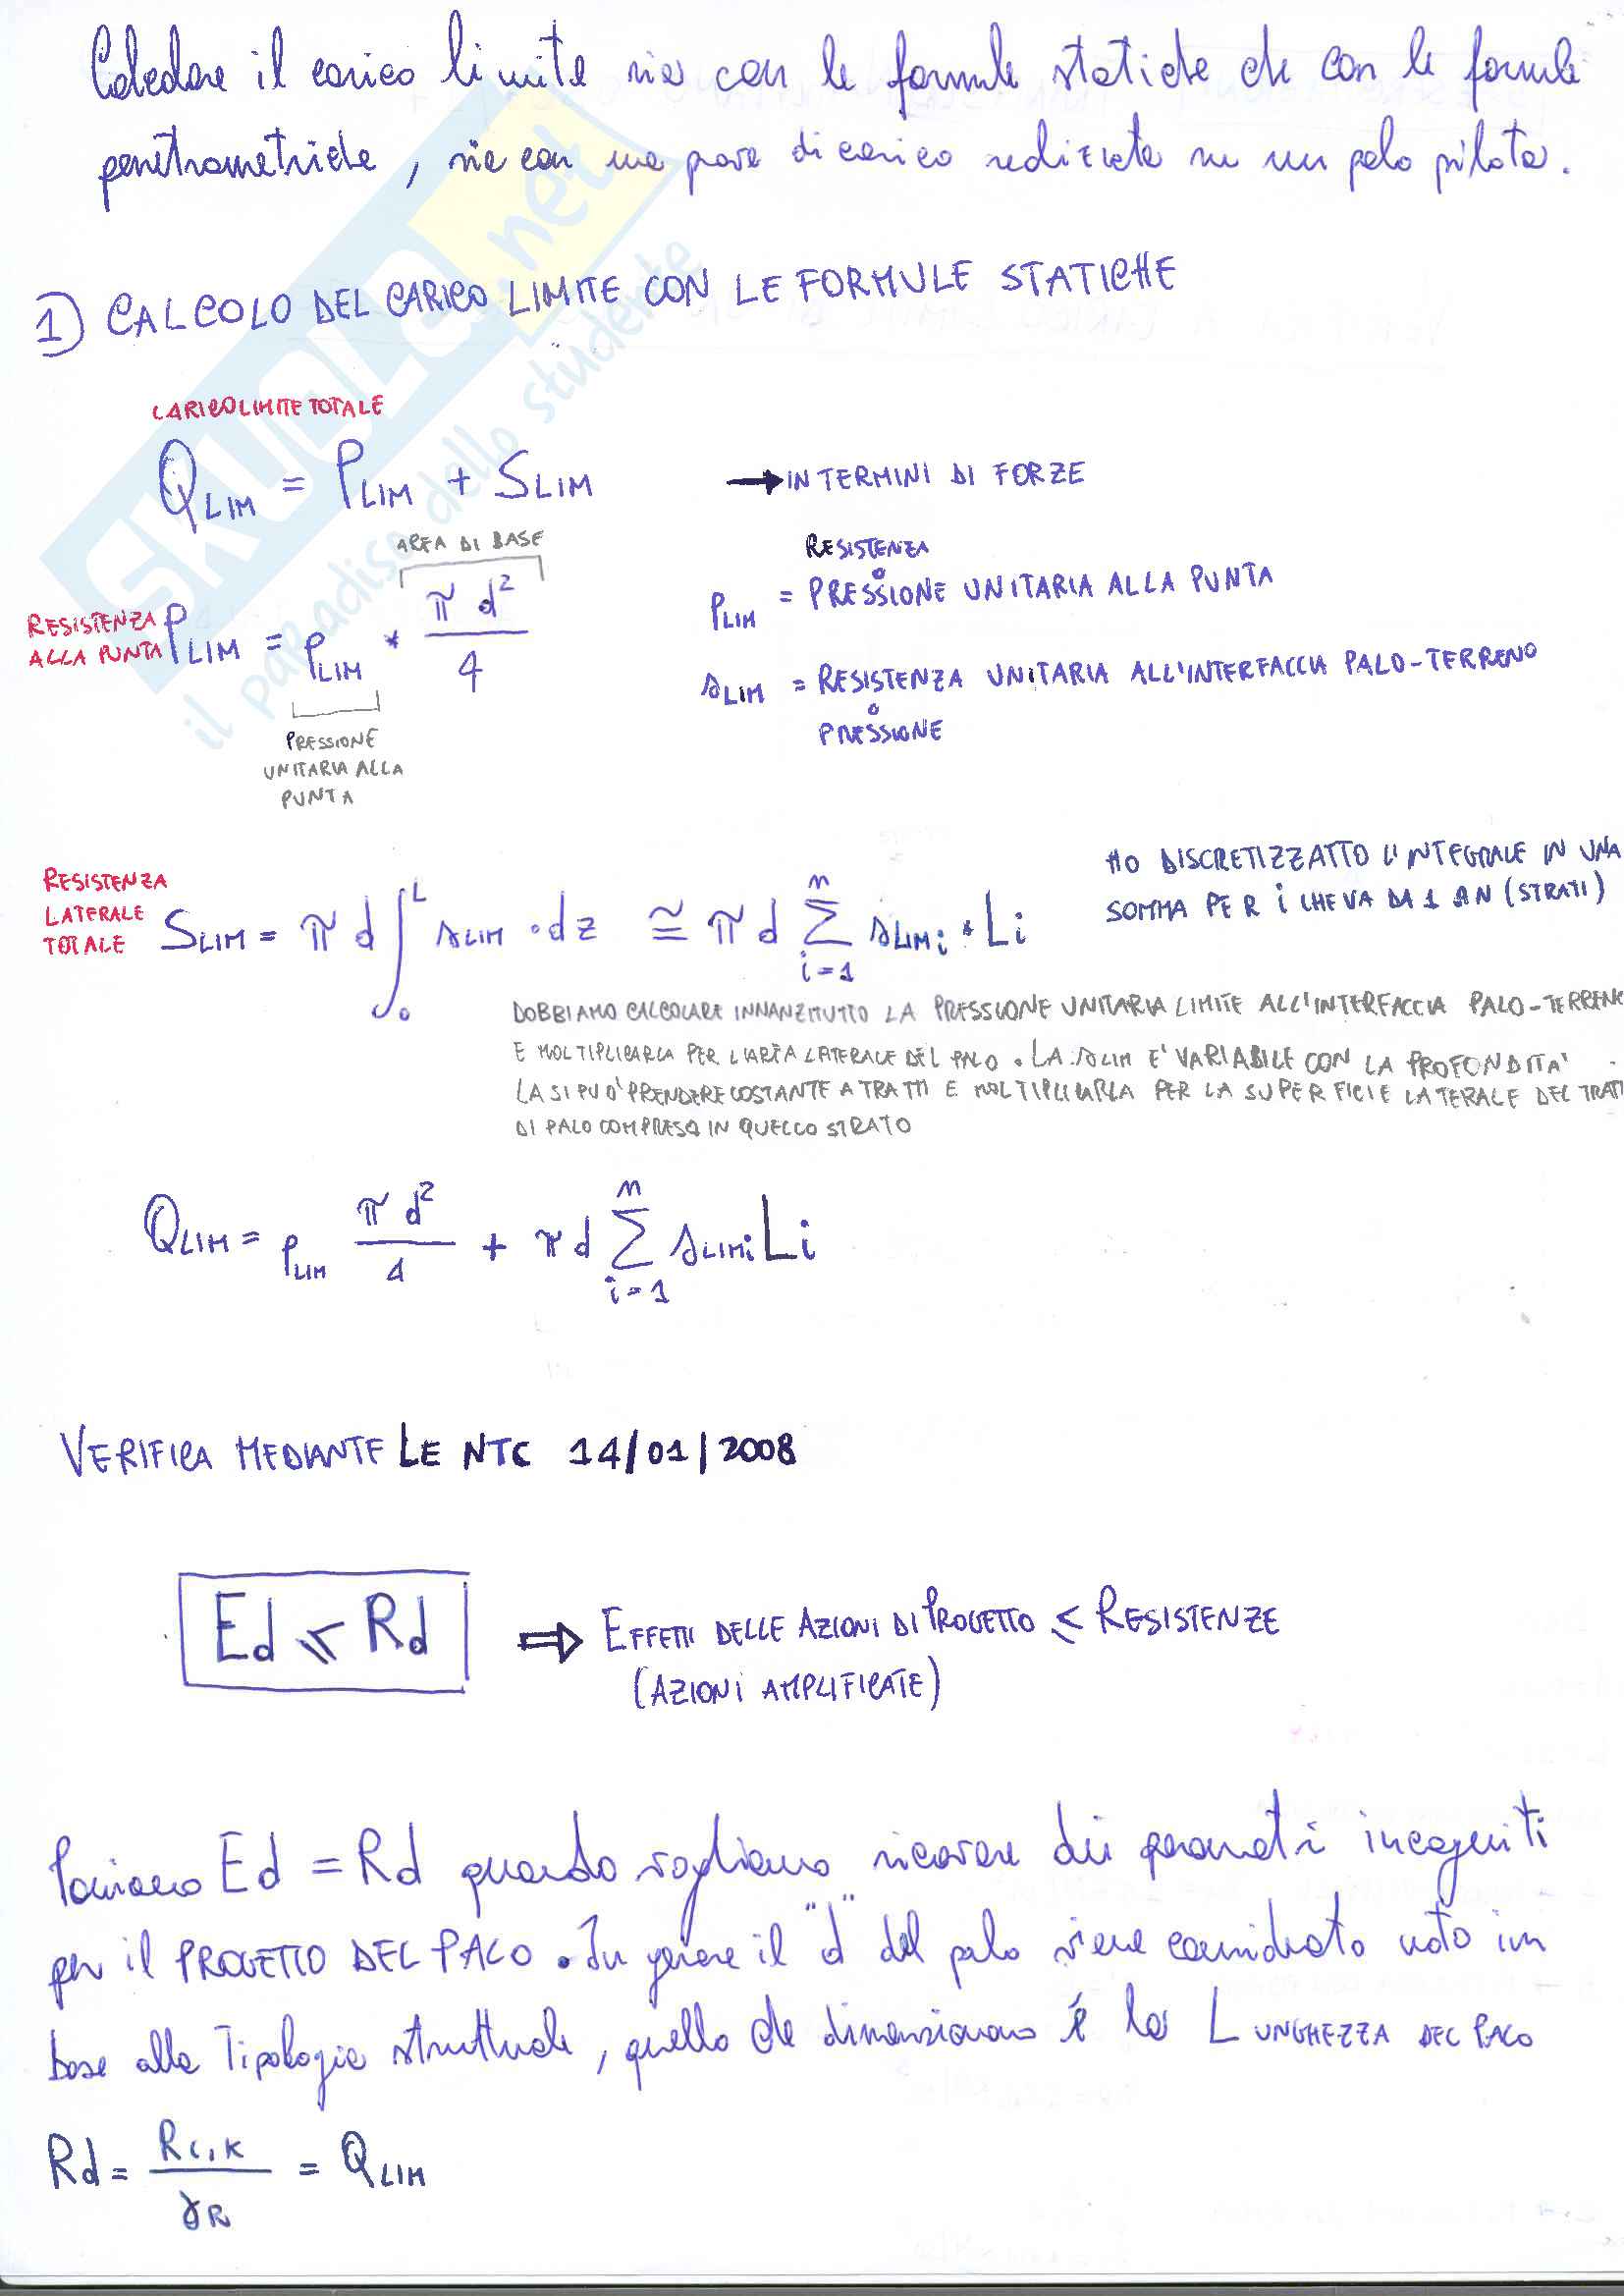 Calcolare il carico limite sia con le formule statiche che con le formule
penetrometriche, sia con una prova di carico realizzata su un palo pilota.
SKUOLA.net
il paradiso dello studente
1) CALCOLO DEL CARICO LIMITE CON LE FORMULE STATICHE
CARICO LIMITE TOTALE
Q_LIM = P_LIM + S_LIM → IN TERMINI DI FORZE
AREA DI BASE
RESISTENZA ALLA PUNTA P_LIM = p_LIM * π d² / 4
PRESSIONE
UNITARIA ALLA
PUNTA
RESISTENZA
o
p_LIM = PRESSIONE UNITARIA ALLA PUNTA
s_LIM = RESISTENZA UNITARIA ALL'INTERFACCIA PALO-TERRENO
o
PRESSIONE
RESISTENZA
LATERALE
TOTALE
S_LIM = π d ∫₀^L s_LIM · dz ≅ π d Σ_{i=1}^{n} s_LIMi * Li
HO DISCRETIZZATTO L'INTEGRALE IN UNA
SOMMA PER i CHE VA DA 1 A N (STRATI)
DOBBIAMO CALCOLARE INNANZITUTTO LA PRESSIONE UNITARIA LIMITE ALL'INTERFACCIA PALO-TERRENO
E MOLTIPLICARLA PER L'AREA LATERALE DEL PALO. LA s_LIM E' VARIABILE CON LA PROFONDITA'
LA SI PUO' PRENDERE COSTANTE A TRATTI E MOLTIPLICARLA PER LA SUPERFICIE LATERALE DEL TRAT
DI PALO COMPRESO IN QUELLO STRATO
Q_LIM = p_LIM π d² / 4 + π d Σ_{i=1}^{n} s_LIMi Li
VERIFICA MEDIANTE LE NTC 14/01/2008
Ed ≤ Rd ⇒ EFFETTI DELLE AZIONI DI PROGETTO ≤ RESISTENZE
(AZIONI AMPLIFICATE)
Poniamo Ed = Rd quando vogliamo ricavare dei parametri incogniti
per il PROGETTO DEL PALO. In genere il "d" del palo viene considerato noto in
base alla Tipologia strutturale, quello che dimensioniamo è la LUNGHEZZA DEL PALO
Rd = Rc,k / γR = Q_LIM